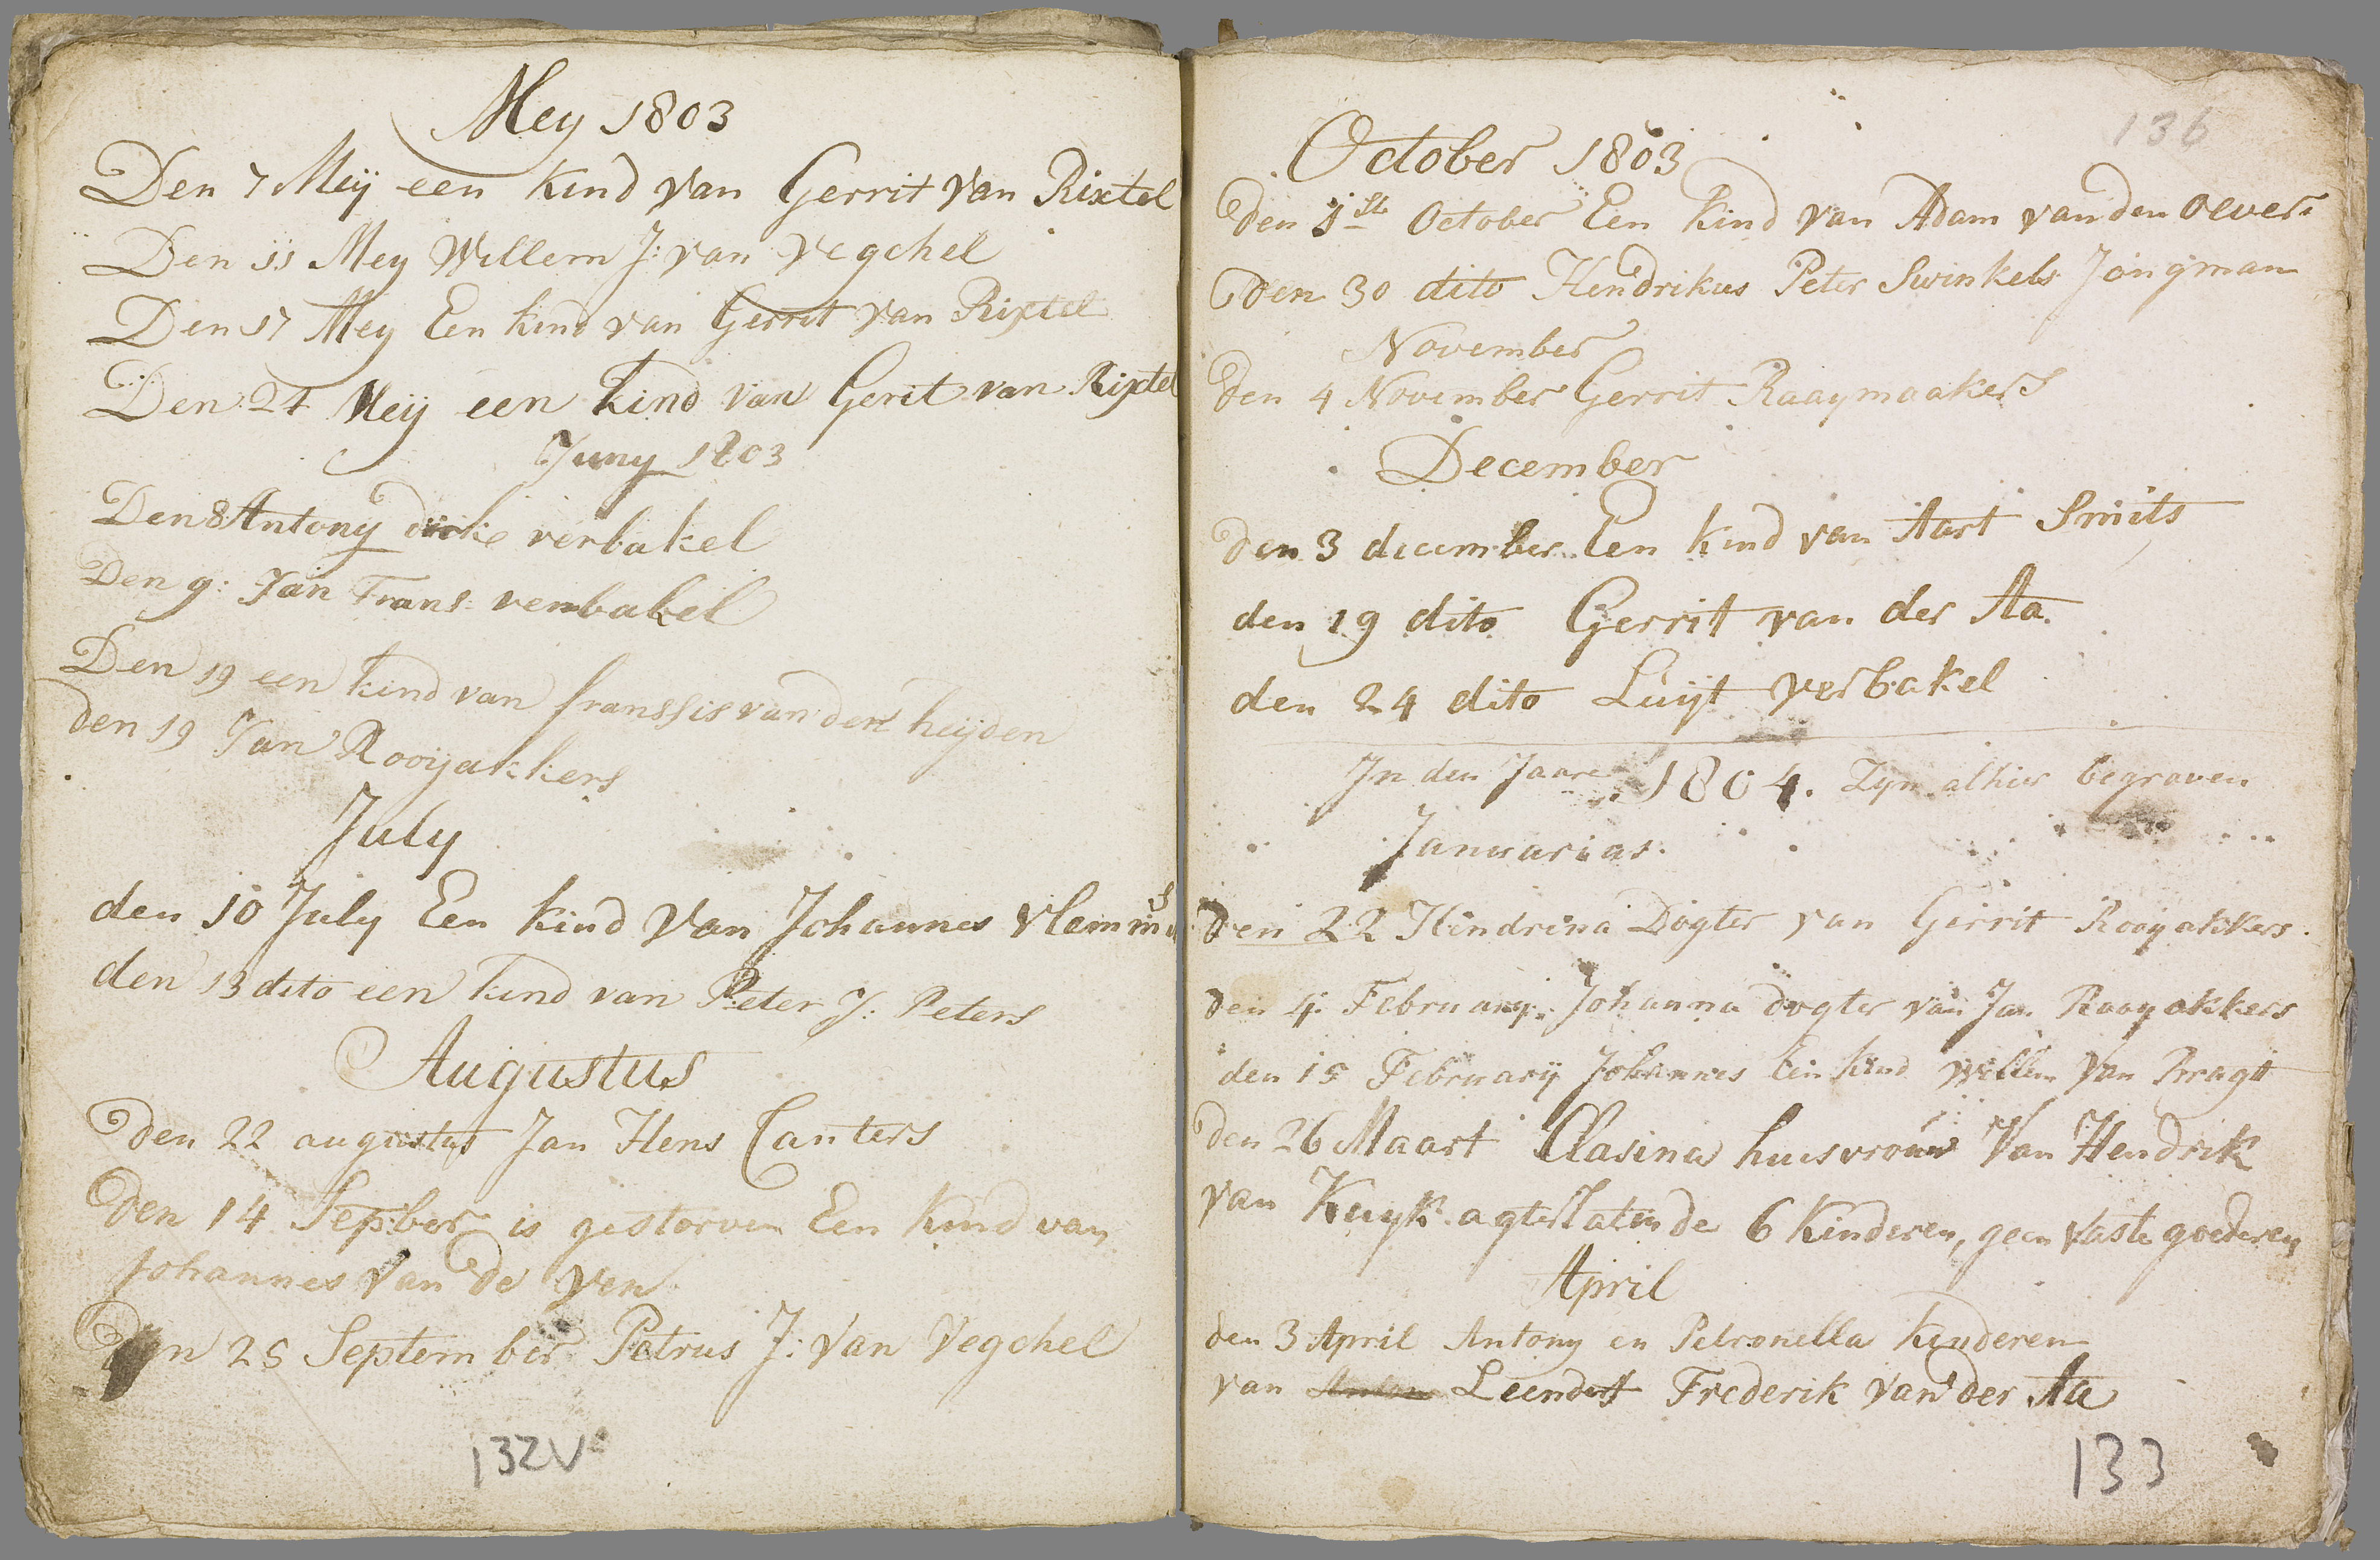 Mey 1803
Den 7 Meij een kind van Gerrit van Rixtel
Den 11 Mey Willem J: van Vegchel
Den 17 Mey Een kind van Gerrit van Rixtel
Den 24 Meij een kind van Gerit van Rixtel
Juny 1803
Den 8 Antony dirke verbakel
Den 9: Jan Frans: verbakel
Den 19 een kind van franssis van den heijden
den 19 Jan Rooijakkers
July
den 10 July Een kind Van Johannes Vlemin
den 13 dito een kind van Peter J: Peters
Augustus
Den 22 augustus Jan Hens Canters
Den 14 Sepber is gestorven Een kind van
Johannes Van de Ven
Den 25 September Petrus J: Van Vegchel
132V
136
October 1803
Den 1ste October Een kind van Adam van den Oever
Den 30 dito Hendrikus Peter Swinkels Jongman
November
Den 4 November Gerrit Raaymaakers
December
den 3 december Een kind van Aart Smits
den 19 dito Gerrit van der Aa.
den 24 dito Luijt verbakel
In den Jaare 1804. Zyn alhier begraven
Januarias.
Den 22 Hendrina Dogter van Gerrit Rooyakkers.
den 4 February Johanna dogter van Jan Raayakkers
den 15 February Johannes Een kind Willem Van Bragt
Den 26 Maart Clasina huisvrouw Van Hendrik
van Kuyk agterlatende 6 Kinderen, geen vaste goederen
April
den 3 April Antony en Petronella kinderen
van Leendert Frederik van der Aa
133